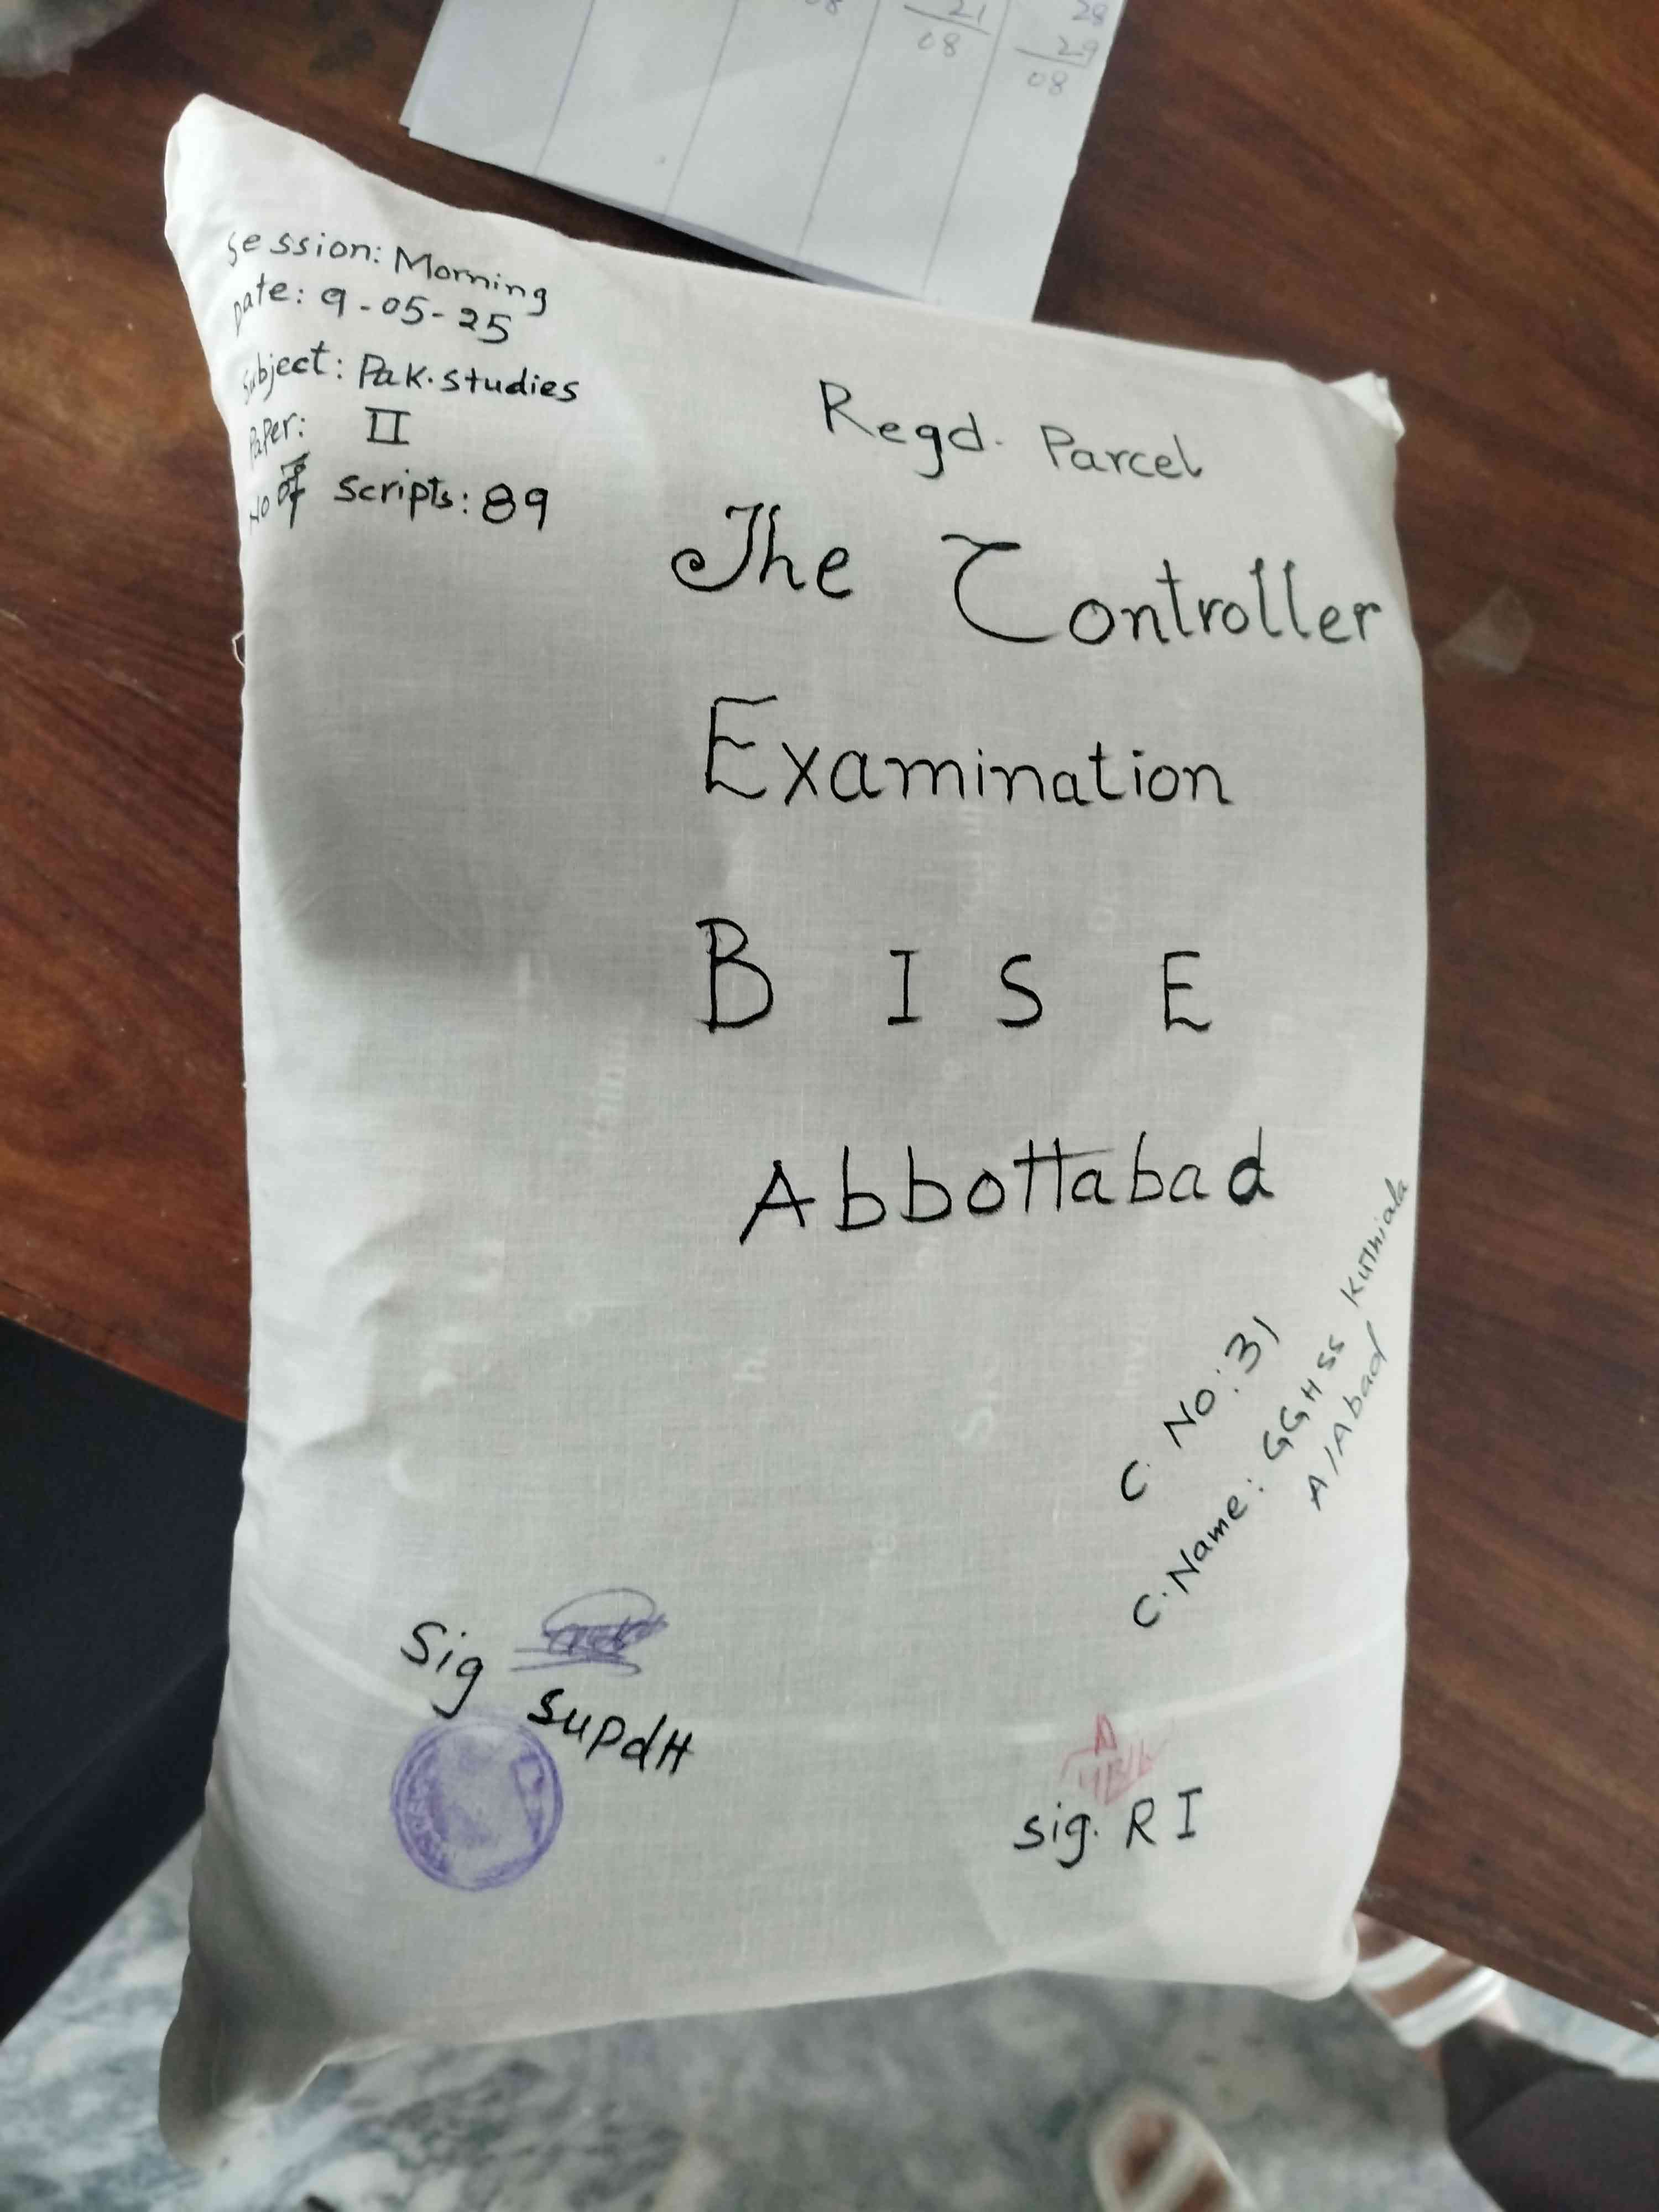 08
21
08
28
29
08
Session: Morning
Date: 9-05-25
Subject: Pak.studies
Paper: II
No of Scripts: 89
Regd. Parcel
The Controller
Examination
B I S E
Abbottabad
C. No: 31
C. Name: GGHSS Kuthiala
A/Abad
Sig
SupdH
sig. RI